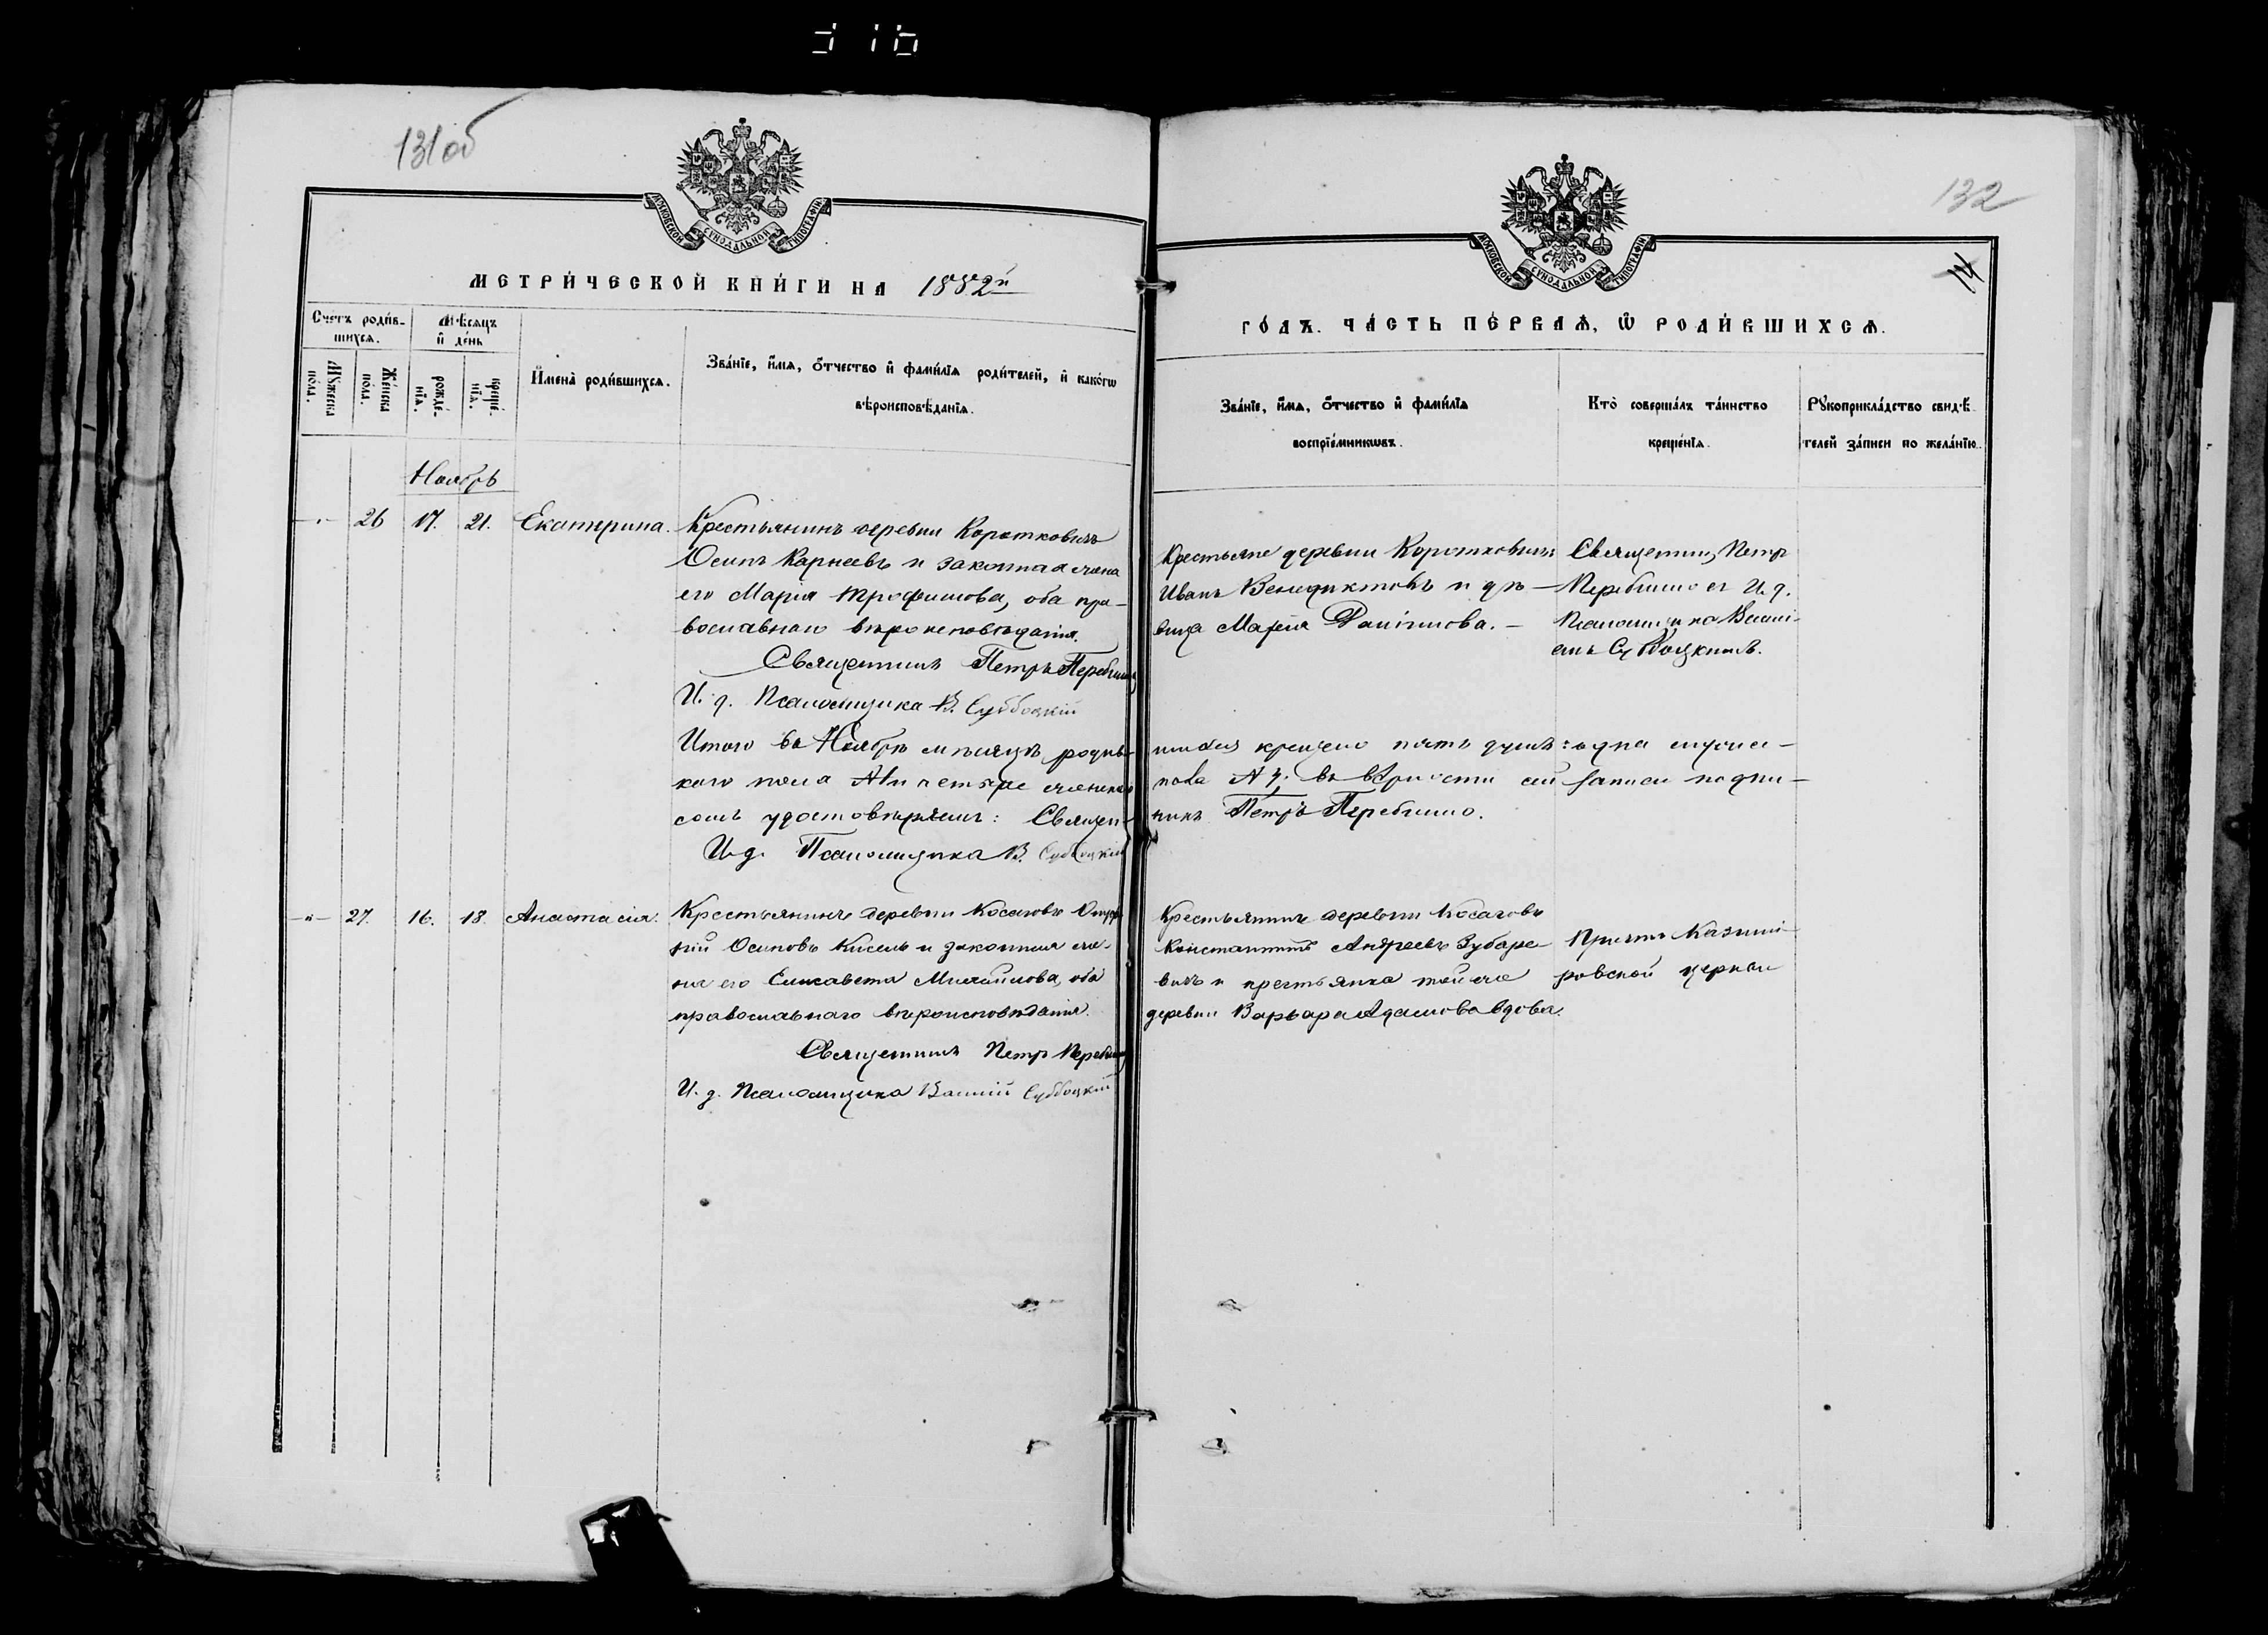 131об
МОСКОВСКОЙ СУНОДАЛЬНОЙ ТИПОГРАФІИ
МЕТРИ́ЧЕСКОЙ КНИ́ГИ НА 1882й
Счетъ роди́вшихся.
Мѣсяцъ и҆ де́нь
Мꙋ́жеска по́ла.
Же́нска по́ла.
рожде́нїѧ.
креще́нїѧ.
И҆мена̀ роди́вшихсѧ.
Зва́нїе, и҆́мѧ, ѻ҆́тчество и҆ фами́лїѧ роди́телей, и҆ како́гѡ
вѣроисповѣ́данїѧ.
Ноябрь
-"- 26 17. 21. Екатерина.
Крестьянинъ деревни Короткович
Осипъ Карнеевъ и законная жена
его Марія Трофимова, оба пра-
вославнаго вѣроисповѣданія.
Священникъ Петръ Перебилло
И. д. Псаломщика В. Субботскій
Итого въ Ноябрѣ мѣсяцѣ родив-
каго пола № и четыре женска
сомъ удостовѣряемъ: Священ-
И. д. Псаломщика В. Субботскій
-"- 27. 16. 18. Анастасія.
Крестьянинъ деревни Косаковъ
Осиповъ Кисель и законная же-
на его Елисавета Михайлова, оба
православнаго вѣроисповѣданія.
Священникъ Петръ Перебилло
И. д. Псаломщика Василій Субботскій
132
14
МОСКОВСКОЙ СУНОДАЛЬНОЙ ТИПОГРАФІИ
ГО́ДЪ. ЧА́СТЬ ПЕ́РВАѦ, Ѡ҆ РОДИ́ВШИХСѦ.
Зва́нїе, и҆́мѧ, ѻ҆́тчество и҆ фами́лїѧ
воспрїе́мникѡвъ.
Кто̀ соверша́лъ та́инство
креще́нїѧ.
Рꙋкоприкла́дство свидѣ́-
телей за́писи по жела́нїю.
Крестьяне деревни Короткович
Иванъ Венедиктовъ и дѣ-
вица Марія Даніилова. -
Священникъ Петръ
Перебилло съ И. д.
Псаломщика Васил-
емъ Субботскимъ.
шихся крещено пять душъ: одна мужес-
пола въ вѣрности сей записи подпи-
никъ Петръ Перебилло.
Крестьянинъ деревни Косаковъ
Константинъ Андреевъ Зубаре-
вичъ и крестьянка той же
деревни Варвара Адамова вдова.
Причтъ Казими-
ровской церкви